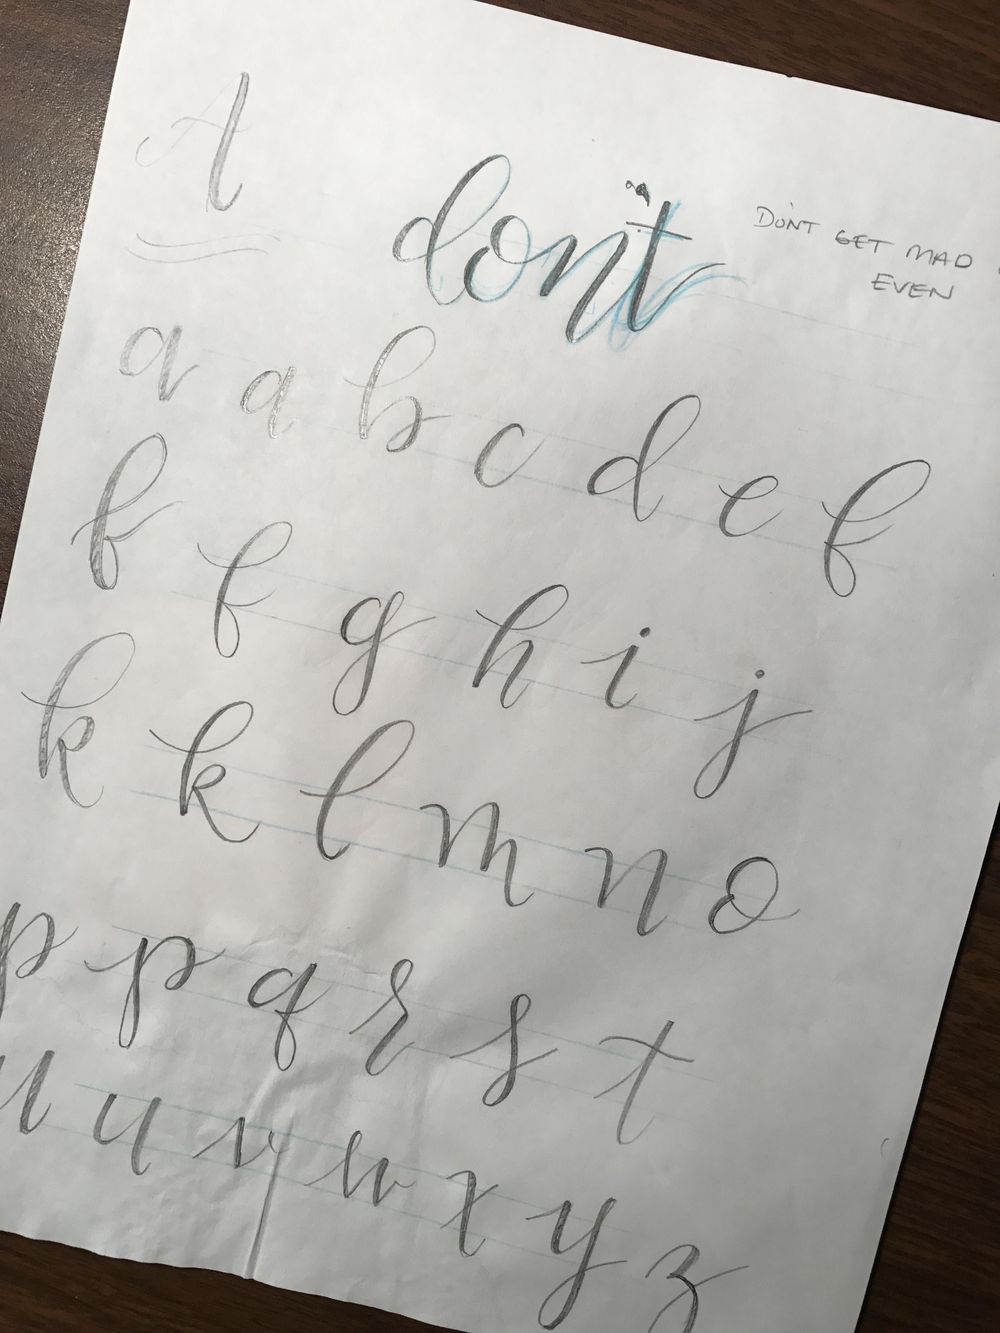 A
don't
DON'T GET MAD
EVEN
a a b c d e f
f f g h i j
k k l m n o
p p q r s t
u u v w x y z